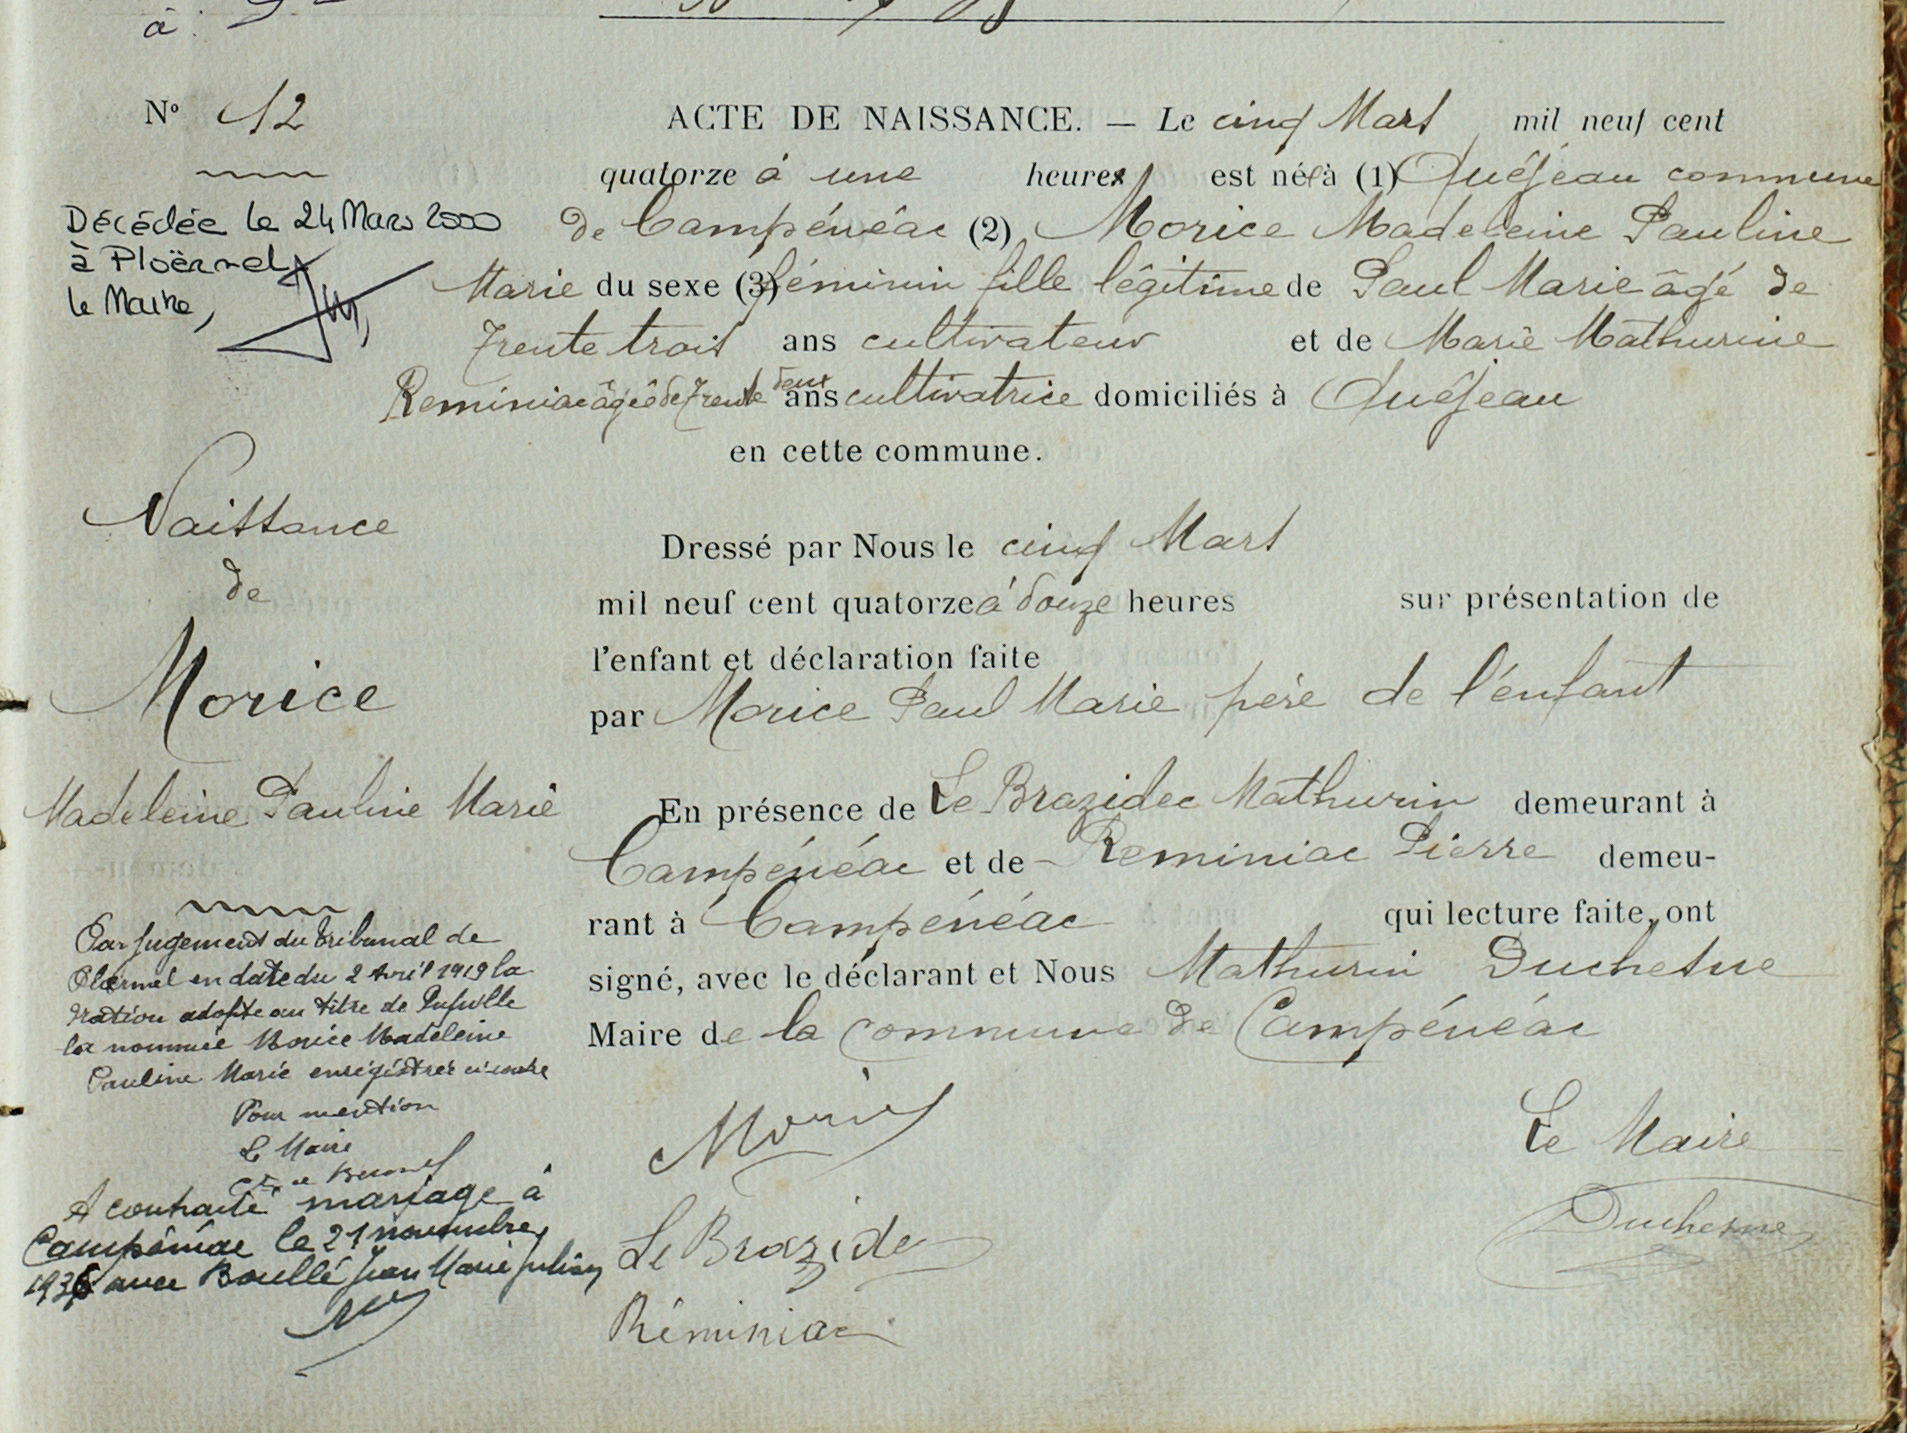 à
N° 12
ACTE DE NAISSANCE. — Le cinq Mars mil neuf cent
quatorze à une heure est née à (1) Quéjeau commune
de Campénéac (2) Morice Madeleine Pauline
Marie du sexe (3) féminin fille légitime de Paul Marie âgé de
Trente trois ans cultivateur et de Marie Mathurine
Reminiac âgée de Trente deux ans cultivatrice domiciliés à Quéjeau
en cette commune.
Dressé par Nous le cinq Mars
mil neuf cent quatorze à douze heures sur présentation de
l'enfant et déclaration faite
par Morice Paul Marie père de l'enfant
En présence de Le Brazidec Mathurin demeurant à
Campénéac et de Reminiac Pierre demeu-
rant à Campénéac qui lecture faite, ont
signé, avec le déclarant et Nous Mathurin Duchesne
Maire de la commune de Campénéac
Morice
Le Maire
Duchesne
Le Brazidec
Réminiac
Décédée le 24 Mars 2000
à Ploërmel
le Maire,
Naissance
de
Morice
Madeleine Pauline Marie
Par jugement du tribunal de
Ploermel en date du 2 Avril 1919 la
Nation adopte au titre de Pupille
la nommée Morice Madeleine
Pauline Marie enregistrée ci-contre
Pour mention
Le Maire
A contracté mariage à
Campénéac le 21 novembre
1936 avec Boullé Jean Marie Julien